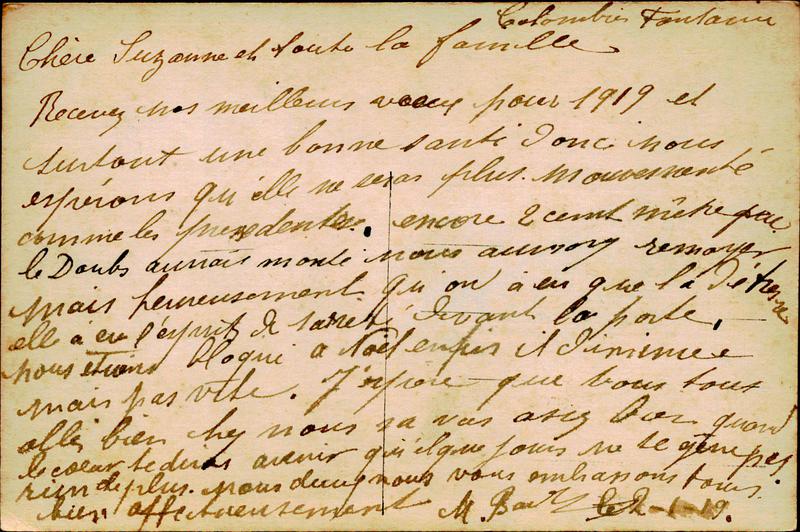 Colombier Fontaine
Chère Suzanne et toute la famille
Recevez nos meilleurs voeux pour 1919 et
surtout une bonne santé donc nous
espérons qu'elle ne seras plus mouvementé
comme les presedente. encore 2 cent mètre que
le Doubs aurais monté nous aurions
mais heureusement qu'on à eu que la détresse
elle à eu l'esprit de devant la porte,
nous étions bloqué a Noël enfin il diminue
mais pas vite. J'espère que vous tous
allé bien chez nous sa vas assez bien quand
le coeur te diras avenir quelque jours ne te gène pas
rien de plus. nous deux nous vous embrassons tous
bien affectueusement M. le 2-1-19.